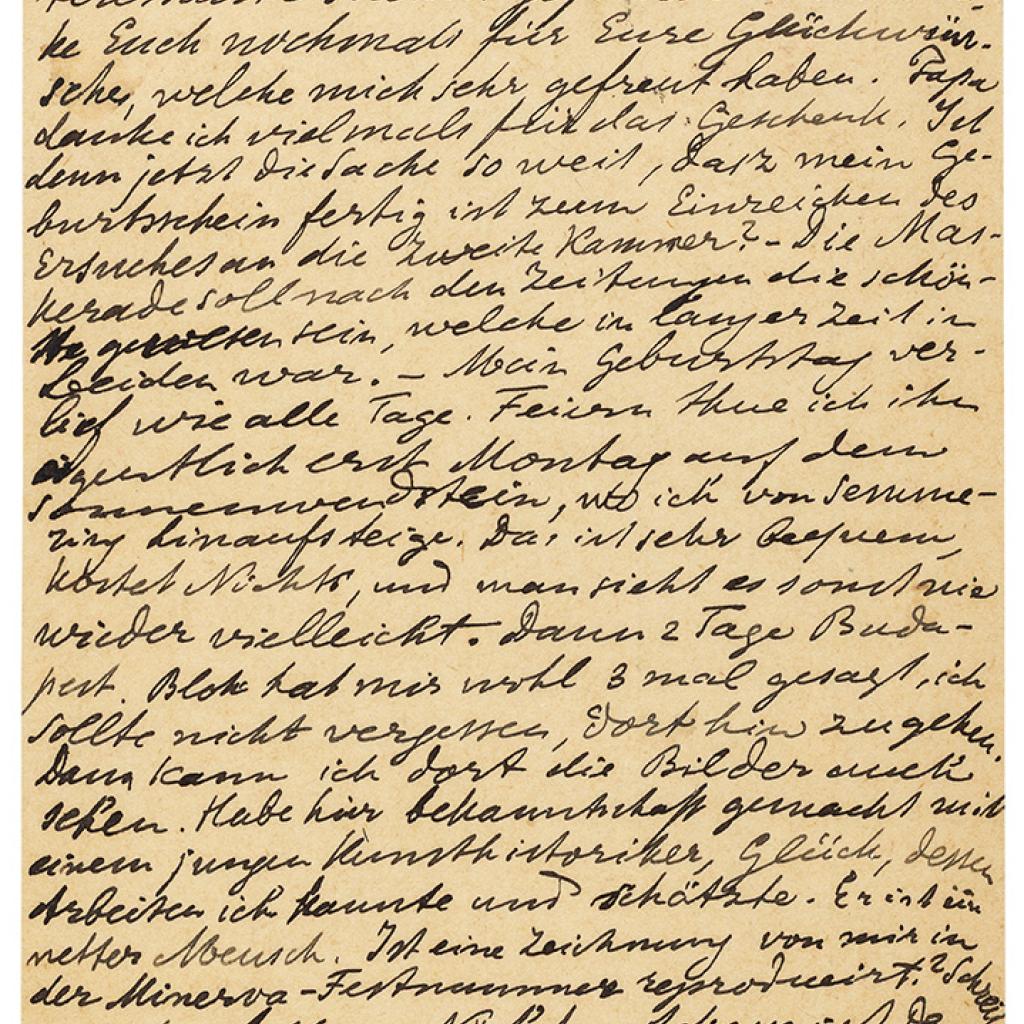 ke Euch nochmals für Eure Glückwün-
sche, welche mich sehr gefreut haben. Papa
danke ich vielmals für das Geschenk. Ist
denn jetzt die Sache so weit, dasz mein Ge-
burtsschein fertig ist zum Einreichen des
Ersuches an die Zweite Kammer? - Die Mas-
kerade soll nach den Zeitungen die schön-
ste gewesen sein, welche in langer Zeit in
Leiden war. - Mein Geburtstag ver-
lief wie alle Tage. Feiern thue ich ihn
eigentlich erst Montag auf dem
Sonnenwendstein, wo ich von Semme-
ring hinaufsteige. Das ist sehr bequem,
kostet Nichts, und man sieht es sonst nie
wieder vielleicht. Dann 2 Tage Buda-
pest. Blok hat mir wohl 3 mal gesagt, ich
sollte nicht vergessen, dort hin zu gehen.
Dann kann ich dort die Bilder auch
sehen. Habe hier bekanntschaft gemacht mit
einem jungen Kunsthistoriker, Glück, dessen
Arbeiten ich kannte und schätzte. Er ist ein
netter Mensch. Ist eine Zeichnung von mir in
der Minerva-Festnummer reproducirt?